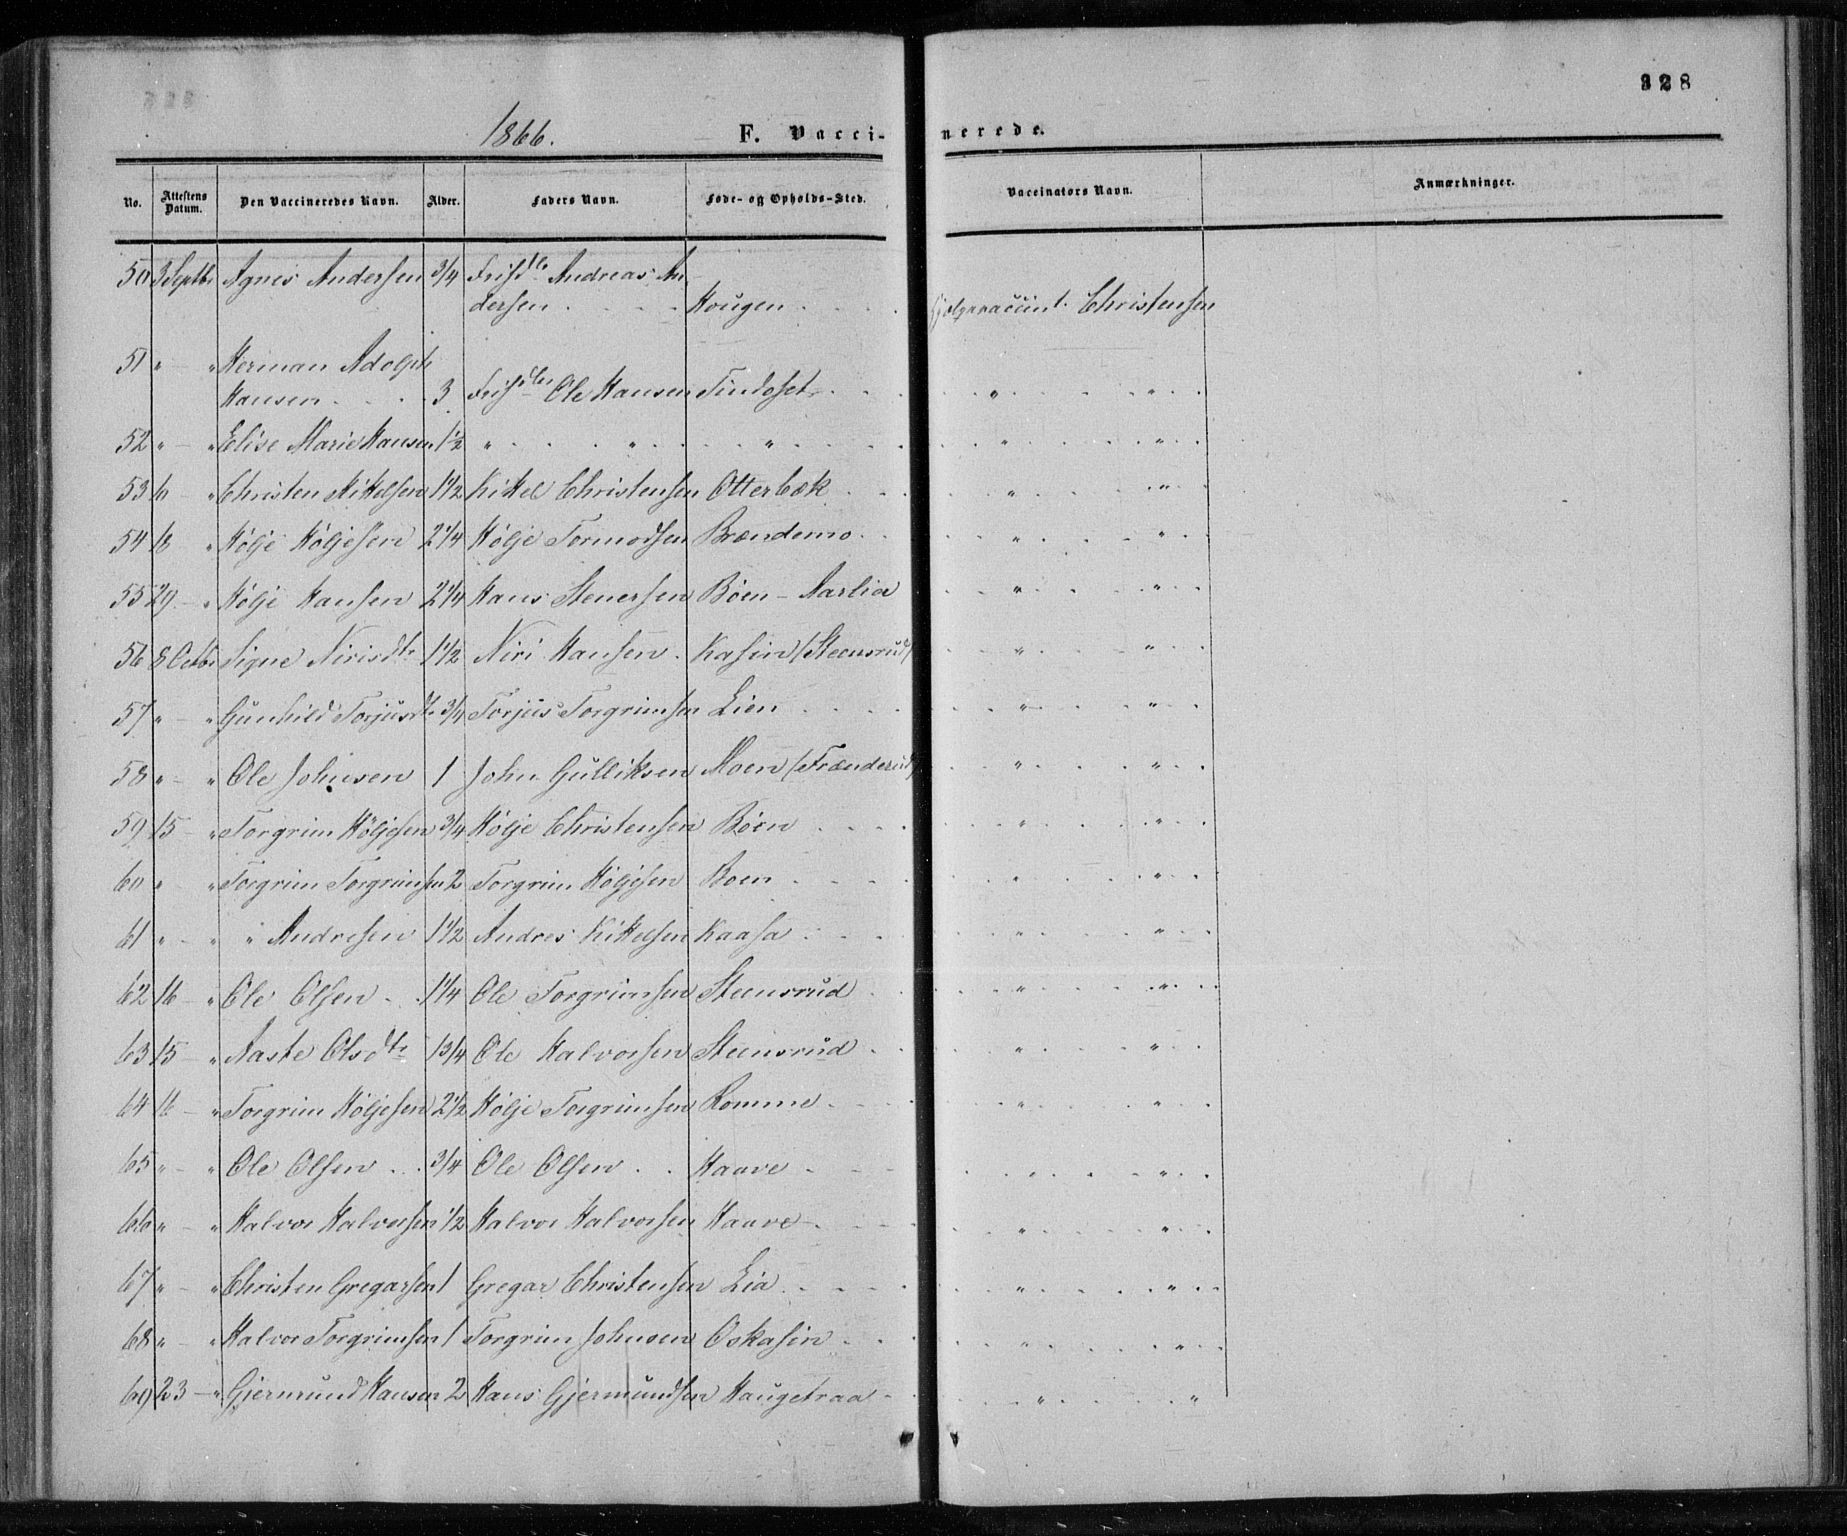 328
1866. F. Vaccinerede.
No. Attestens Datum. Den Vaccineredes Navn. Alder. Faders Navn. Føde- og Opholds-Sted. Vaccinators Navn. Anmærkninger.
50 3 Septbr Agnes Andersen 3/4 Andreas An
dersen Hougen Christensen
51 " - " Herman Adolph
Hansen 3 Ole Hansen Tindeset " "
52 " - " Elise Marie Hansen 1/2 " " " " "
53 6 " Christen Kittelsen 1 1/2 Kittel Christensen Otterbæk " "
54 18 " Hølje Høljesen 2 1/4 Hølje Tormodsen Brændemo " "
55 29 - " Hølje Hansen 2 1/4 Hans Stenersen Böen - Aarlia " "
56 8 Octbr Signe Nirisdtr 1 1/2 Niri Hansen Kasin (Steensrud) " "
57 " - " Gunhild Torjusdtr 3/4 Torjus Torgrimsen Lien " "
58 " - " Ole Johnsen 1 John Gulliksen Moen (Frænderud) " "
59 15 - " Torgrim Høljesen 3/4 Hølje Christensen Böen " "
60 " - " Torgrim Torgrimsen 2 Torgrim Høljesen Boen " "
61 " - " " Andresen 1 1/2 Andres Kittelsen Kaasa " "
62 16 - " Ole Olsen 1 1/4 Ole Torgrimsen Steensrud " "
63 15 - " Aaste Olsdtr 1 3/4 Ole Halvorsen Steensrud " "
64 16 - " Torgrim Høljesen 2 1/2 Hølje Torgrimsen Romme " "
65 " - " Ole Olsen 3/4 Ole Olsen Haave " "
66 " - " Halvor Halvorsen 1/2 Halvor Halvorsen Haave " "
67 " - " Christen Gregarsen 1 Gregar Christensen Lia " "
68 " - " Halvor Torgrimsen 1 Torgrim Johnsen Oskasin " "
69 23 - " Gjermund Hansen 2 Hans Gjermundsen Haugetraa " "